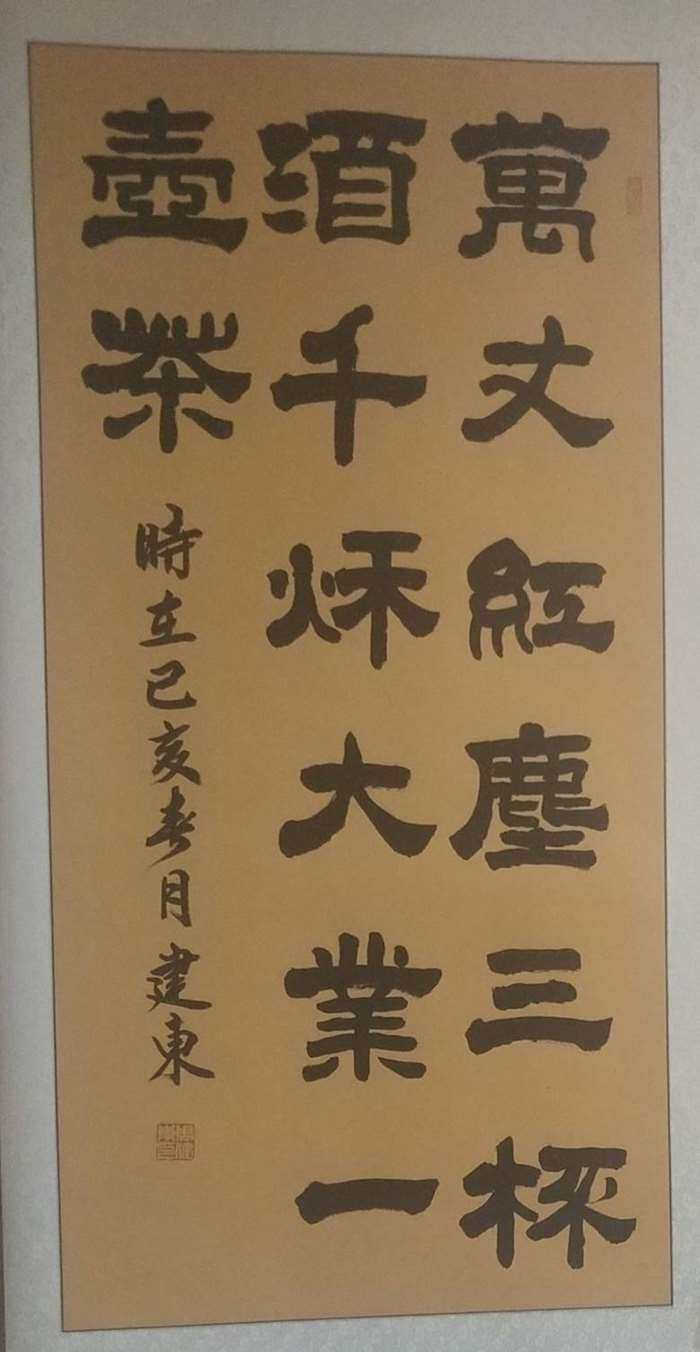 萬丈紅塵三杯
酒千秌大業一
壺茶
時在己亥春月建東